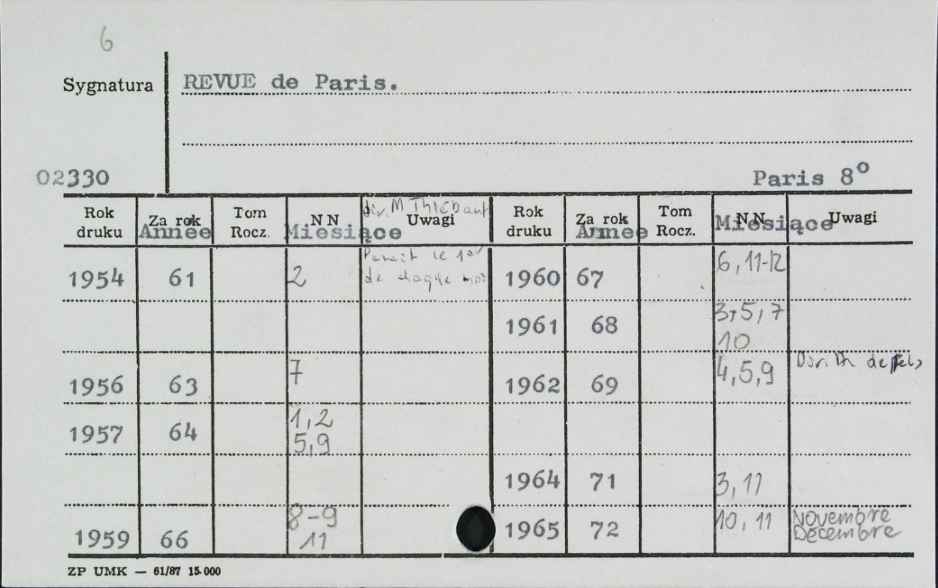 6
Sygnatura REVUE de Paris.
02330 Paris 8°
Rok druku Za rok Année Tom Rocz. NN Miesiące dir. M Thiébaut Uwagi Rok druku Za rok Année Tom Rocz. NN Miesiące Uwagi
1954 61 2 Parait le 1er de chaque mois 1960 67 6, 11-12
1961 68 3, 5, 7 10
1956 63 7 1962 69 4, 5, 9
1957 64 1, 2 5, 9
1964 71 3, 11
1959 66 8-9 11 1965 72 10, 11 Novembre Décembre
ZP UMK — 61/87 15.000